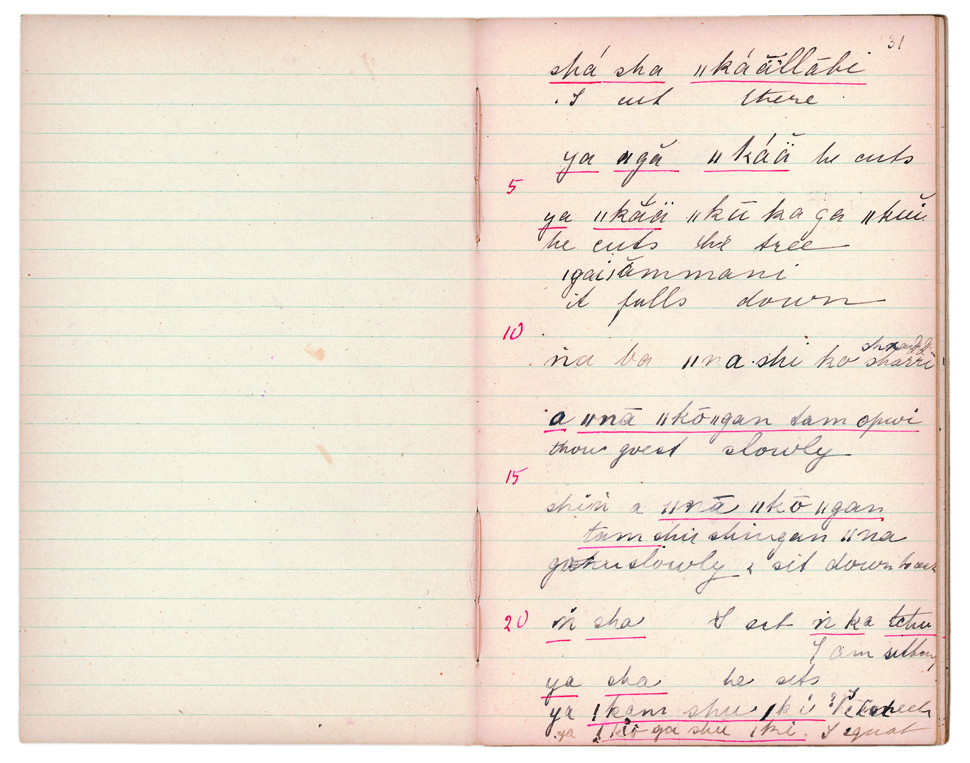 31
shá sha ǁkáällăbi
I cut there
ya ǁgă ǁkáä he cuts
5
ya ǁkăä ǁkū ka ga ǁkuĭ
he cuts the tree
ǀgaiǀămmani
it falls down
10
ṅa ba ǁna shi ko sharri
a ǁnā ǁkōǁgan tam opwi
thou goest slowly
15
shiṅ a ǁnā ǁkōǁgan
tam shingan ǁna
slowly & sit down
20 ṅ sha I sit ṅ ka tchu
I am sitting
ya sha he sits
ya ǀkam shu ǀki
ya ga shu ǀki. I squat